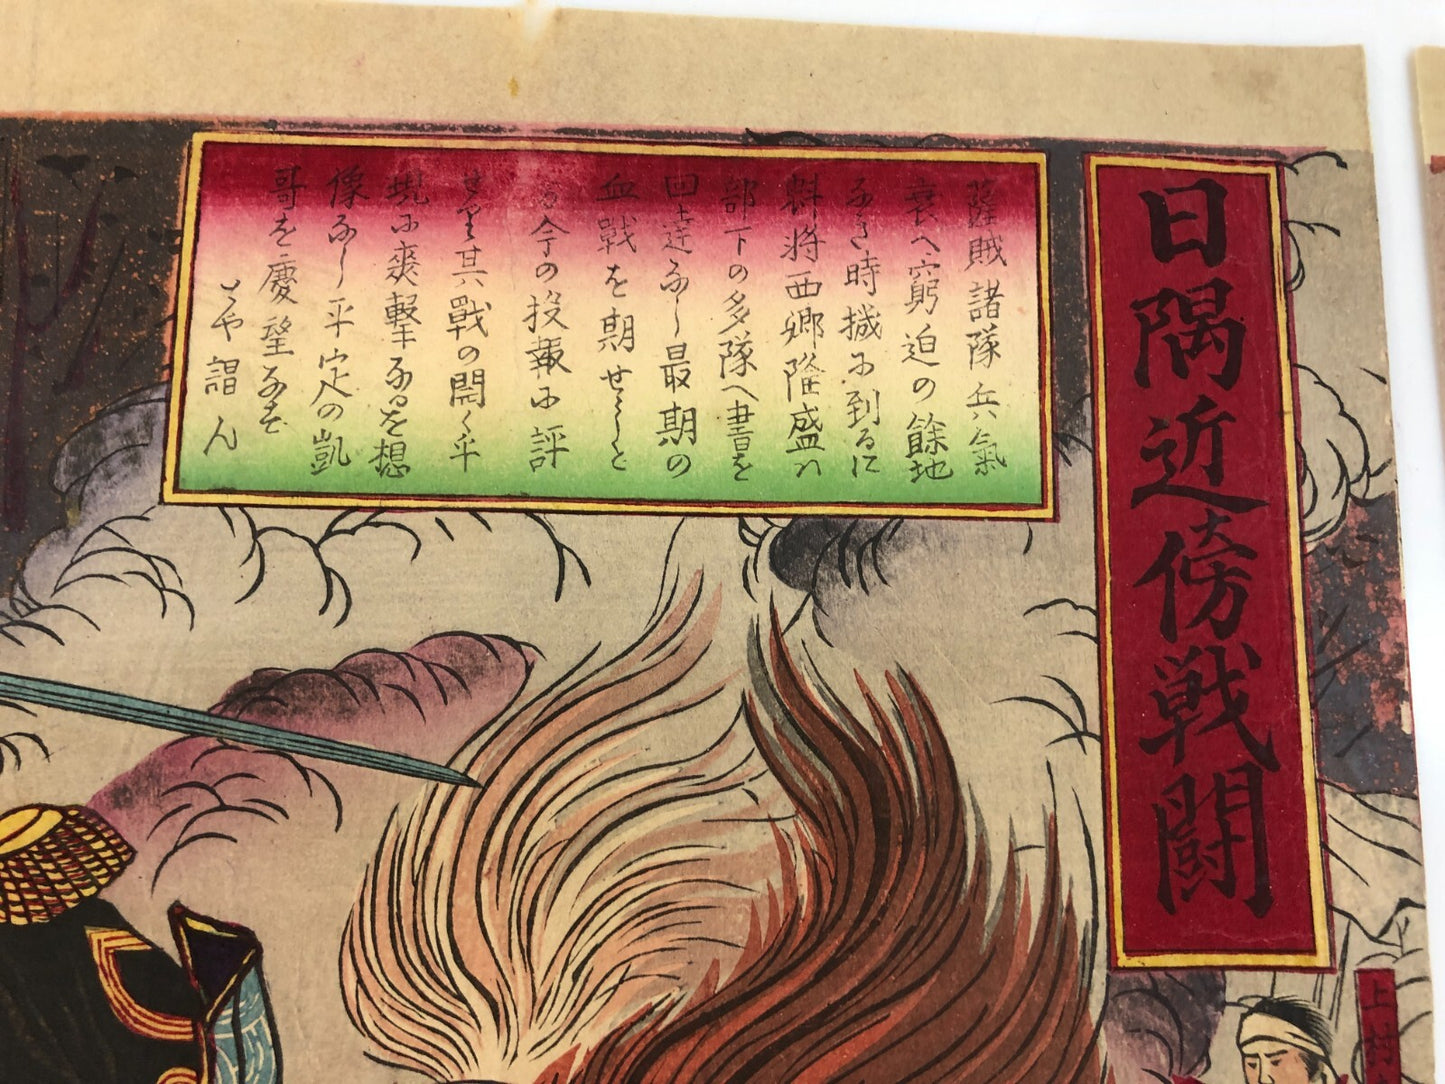 日隅近傍戦闘
薩賊諸隊兵氣
衰へ窮迫の餘地
なき時機に到るに
魁将西郷隆盛ハ
部下の多隊へ書を
回達なし最期の
血戰を期せしと
今の投報に評
其戰の開く乎
現に爽撃なるを想
像なし平定の凱
哥を慶望なす
とや謂ん
上村